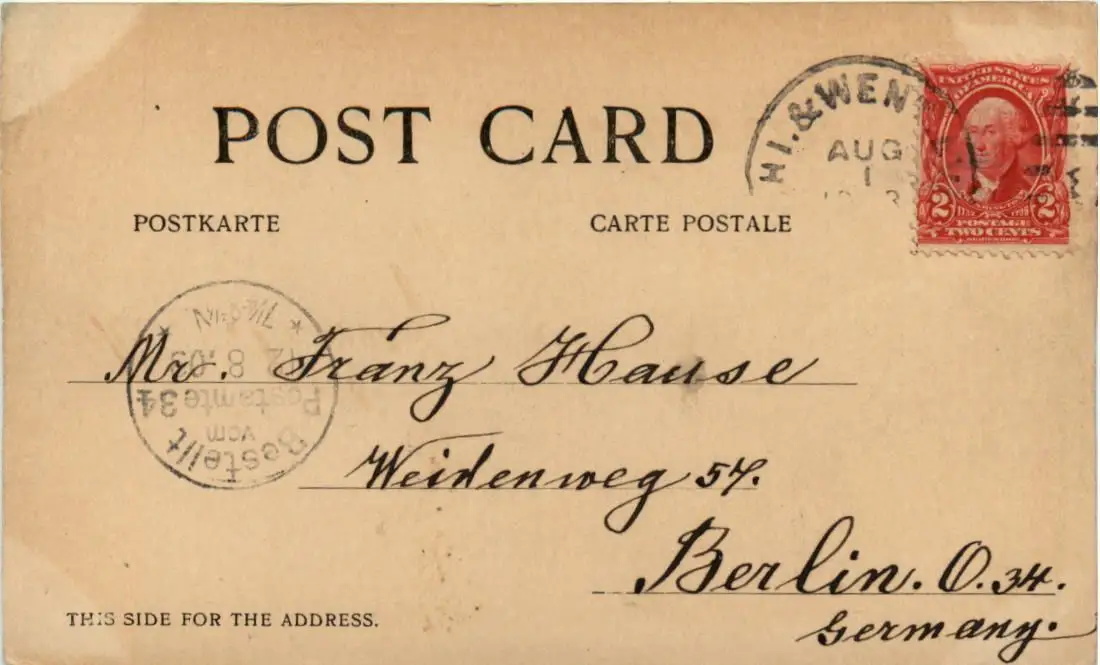 POST CARD
HI. & WEN
AUG
1
POSTKARTE
CARTE POSTALE
UNITED STATES
OF AMERICA
2 2
POSTAGE
TWO CENTS
Mr. Franz Hause
Weidenweg 57.
Berlin. O. 34.
Germany.
Bestellt
vom
Postamte 34
12 8 03
THIS SIDE FOR THE ADDRESS.